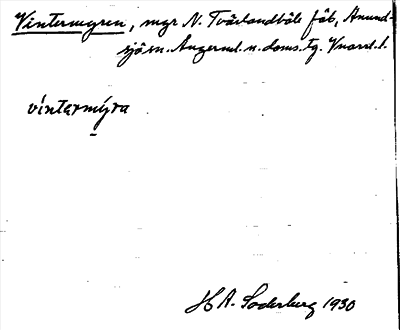 Vintermyren, mgr N. Tvärlandböle fäb, Anund-
sjö sn. Ångerml. n. doms. tg. Vnorrl. l.
vintermyra
H A. Soderberg 1930